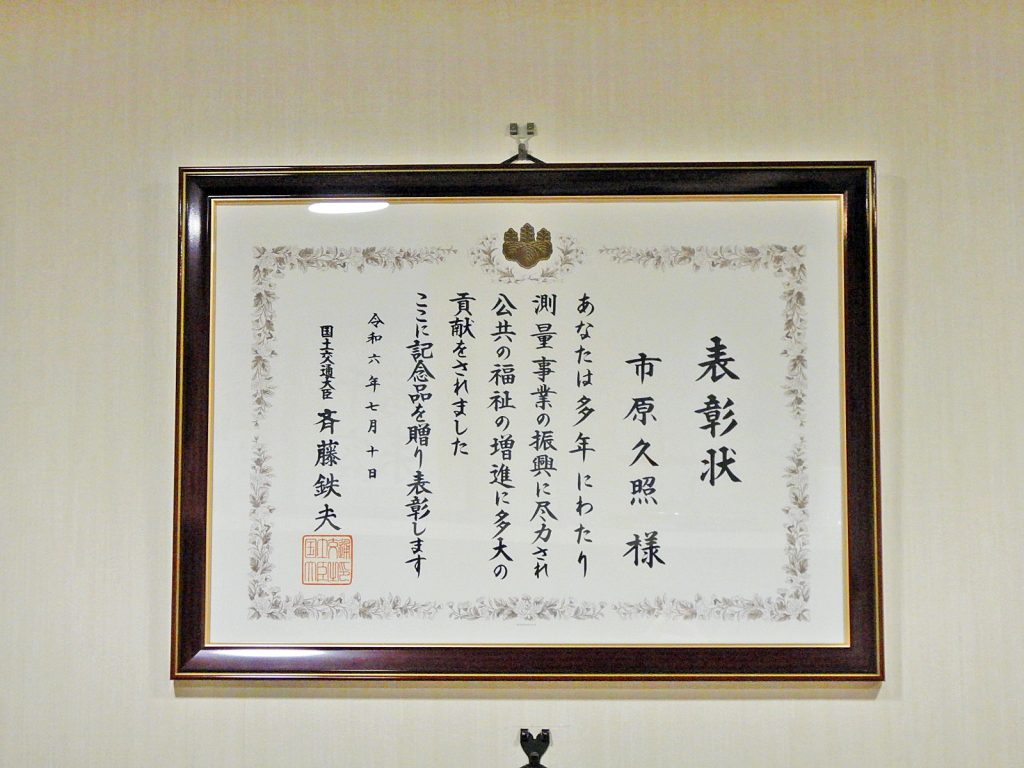 表彰状
市原久照 様
あなたは多年にわたり
測量事業の振興に尽力され
公共の福祉の増進に多大の
貢献をされました
ここに記念品を贈り表彰します
令和六年七月十日
国土交通大臣 斉藤鉄夫